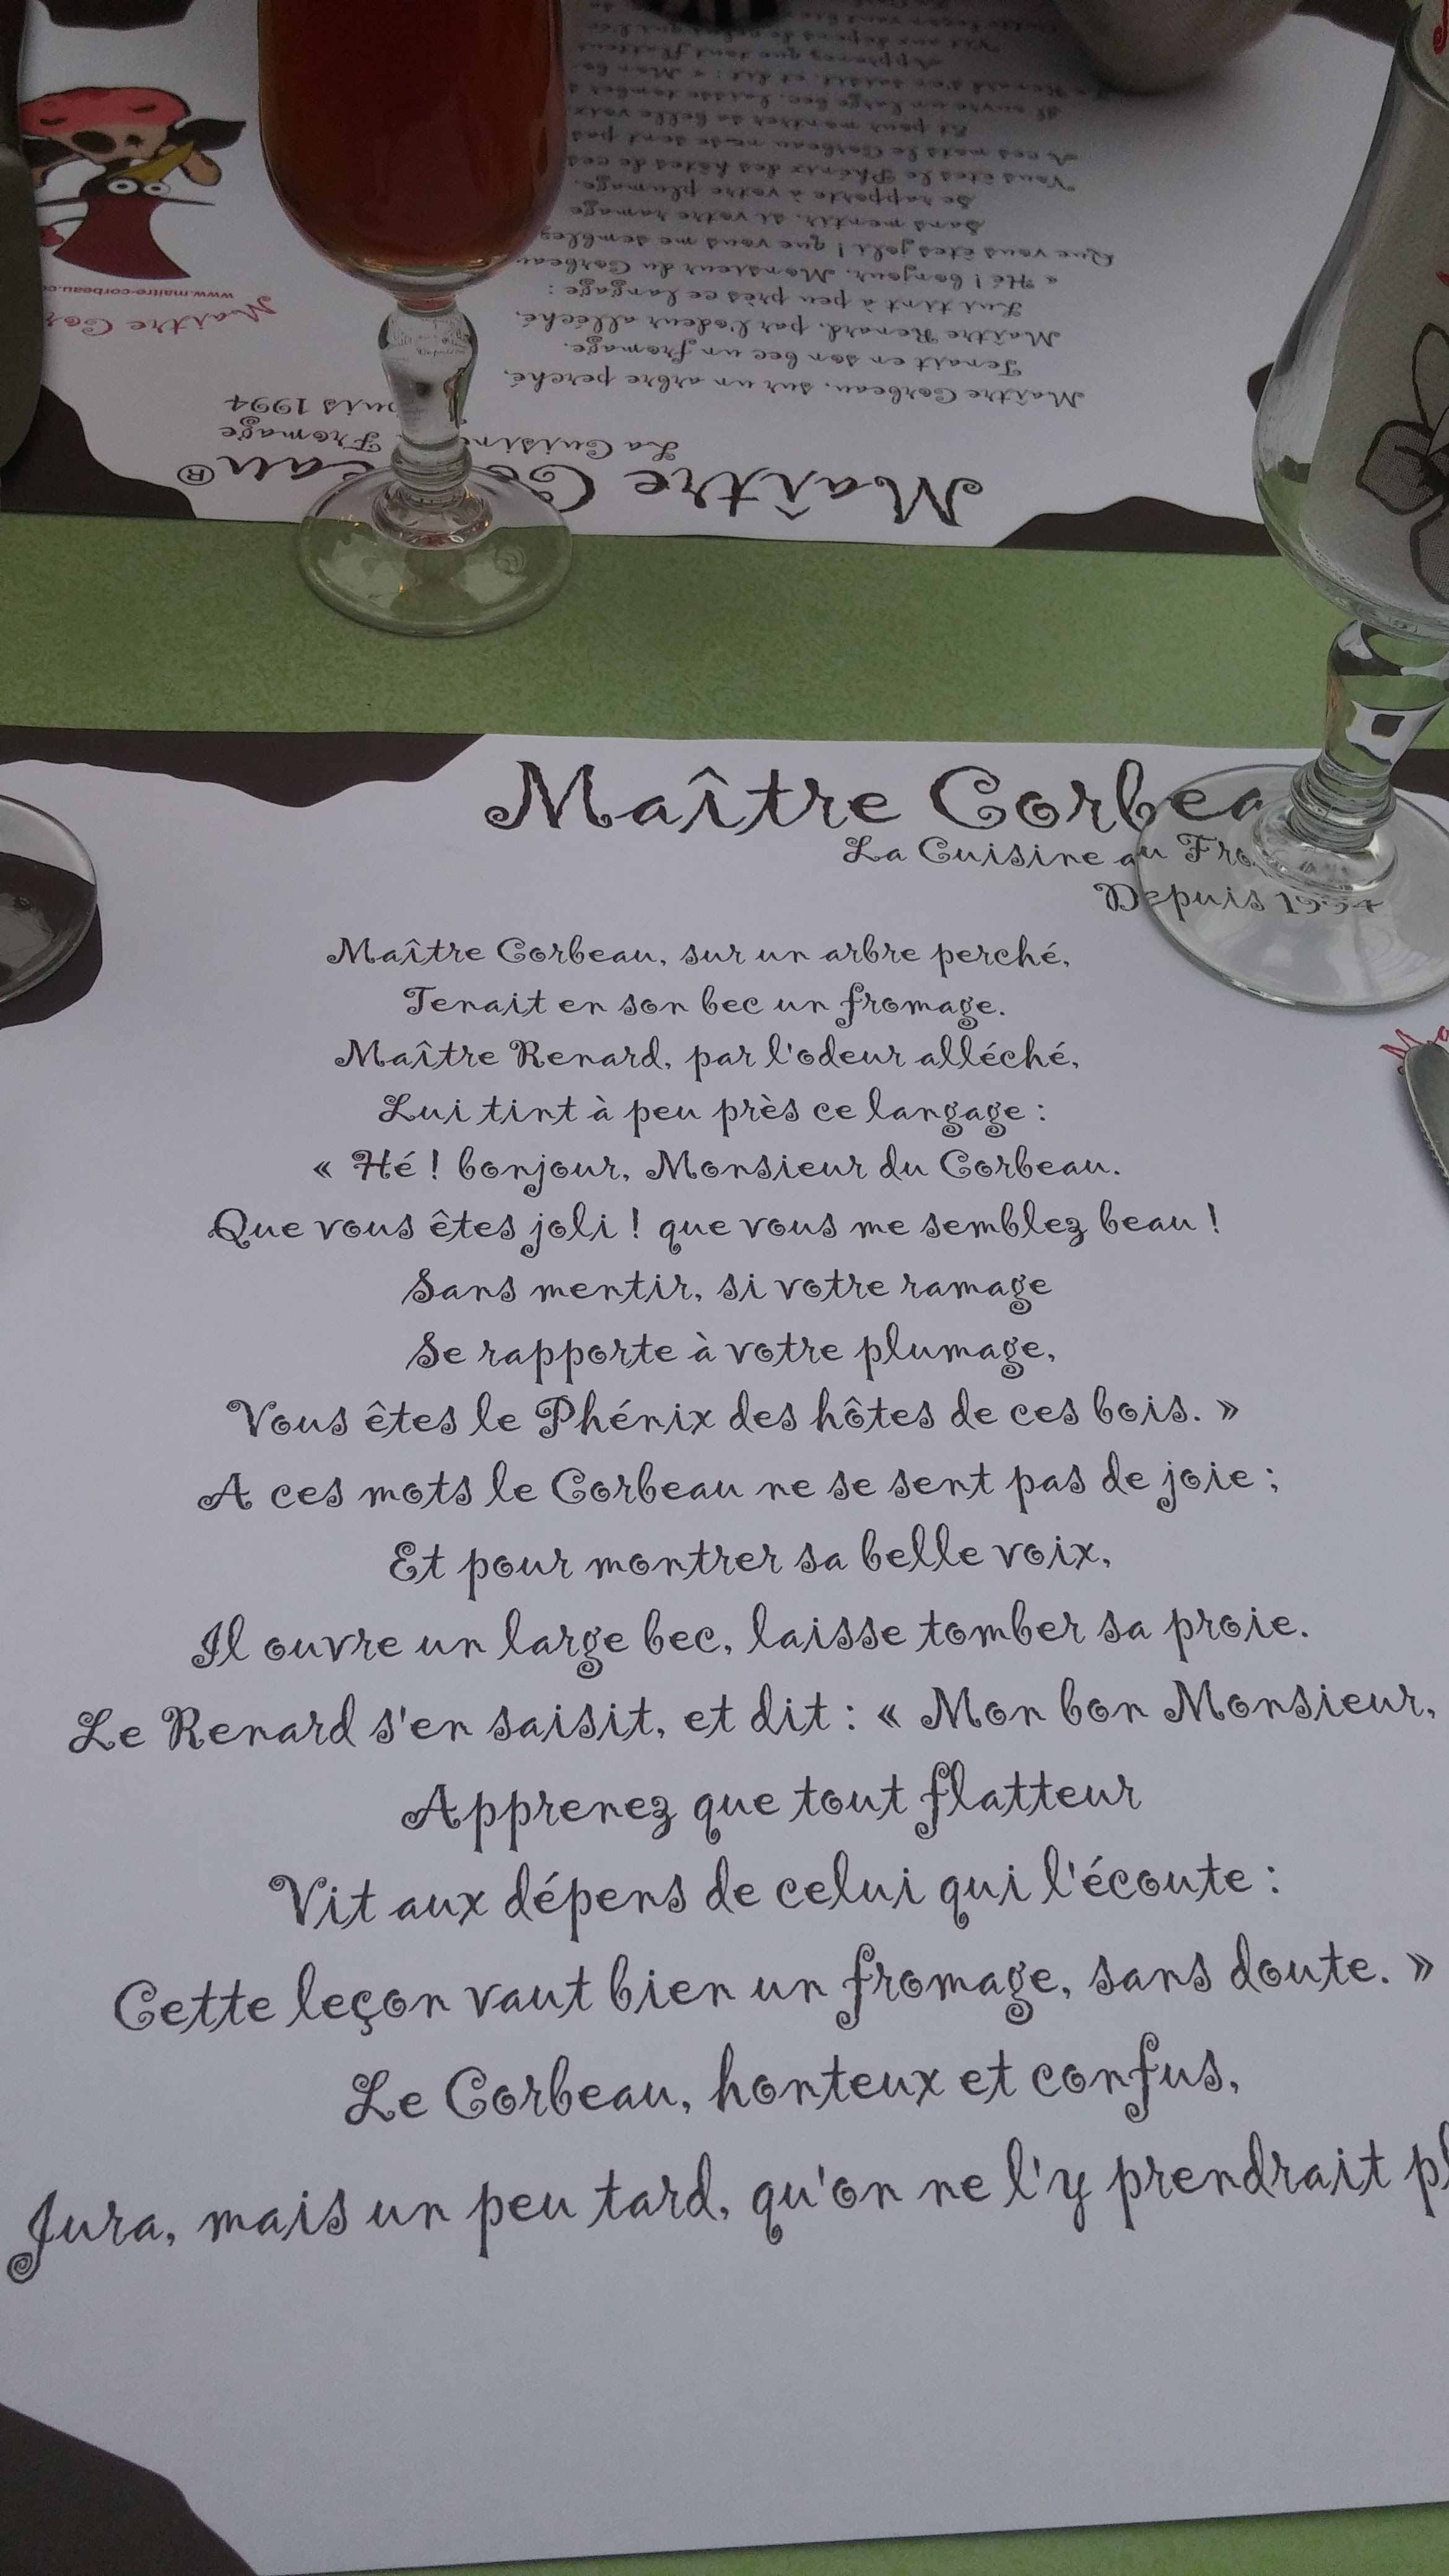 Maître Corbeau®
La Cuisine Fromage
uis 1994
Maître Cor
www.maitre-corbeau.co
Maître Corbeau, sur un arbre perché,
Tenait en son bec un fromage.
Maître Renard, par l'odeur alléché,
Lui tint à peu près ce langage :
« Hé ! bonjour, Monsieur du Corbeau.
Que vous êtes joli ! que vous me semblez
Sans mentir, si votre ramage
Se rapporte à votre plumage,
Vous êtes le Phénix des hôtes de ces
A ces mots le Corbeau ne se sent pas
Et pour montrer sa belle voix
Il ouvre un large bec, laisse tomber s
Le Renard s'en saisit, et dit : « Mon bo
Apprenez que tout flatteur
Vit aux dépens de celui qui l'éc
Maître Corbea
La Cuisine au Fro
Depuis 1994
Maître Corbeau, sur un arbre perché,
Tenait en son bec un fromage.
Maître Renard, par l'odeur alléché,
Lui tint à peu près ce langage :
« Hé ! bonjour, Monsieur du Corbeau.
Que vous êtes joli ! que vous me semblez beau !
Sans mentir, si votre ramage
Se rapporte à votre plumage,
Vous êtes le Phénix des hôtes de ces bois. »
A ces mots le Corbeau ne se sent pas de joie ;
Et pour montrer sa belle voix,
Il ouvre un large bec, laisse tomber sa proie.
Le Renard s'en saisit, et dit : « Mon bon Monsieur,
Apprenez que tout flatteur
Vit aux dépens de celui qui l'écoute :
Cette leçon vaut bien un fromage, sans doute. »
Le Corbeau, honteux et confus,
Jura, mais un peu tard, qu'on ne l'y prendrait pl